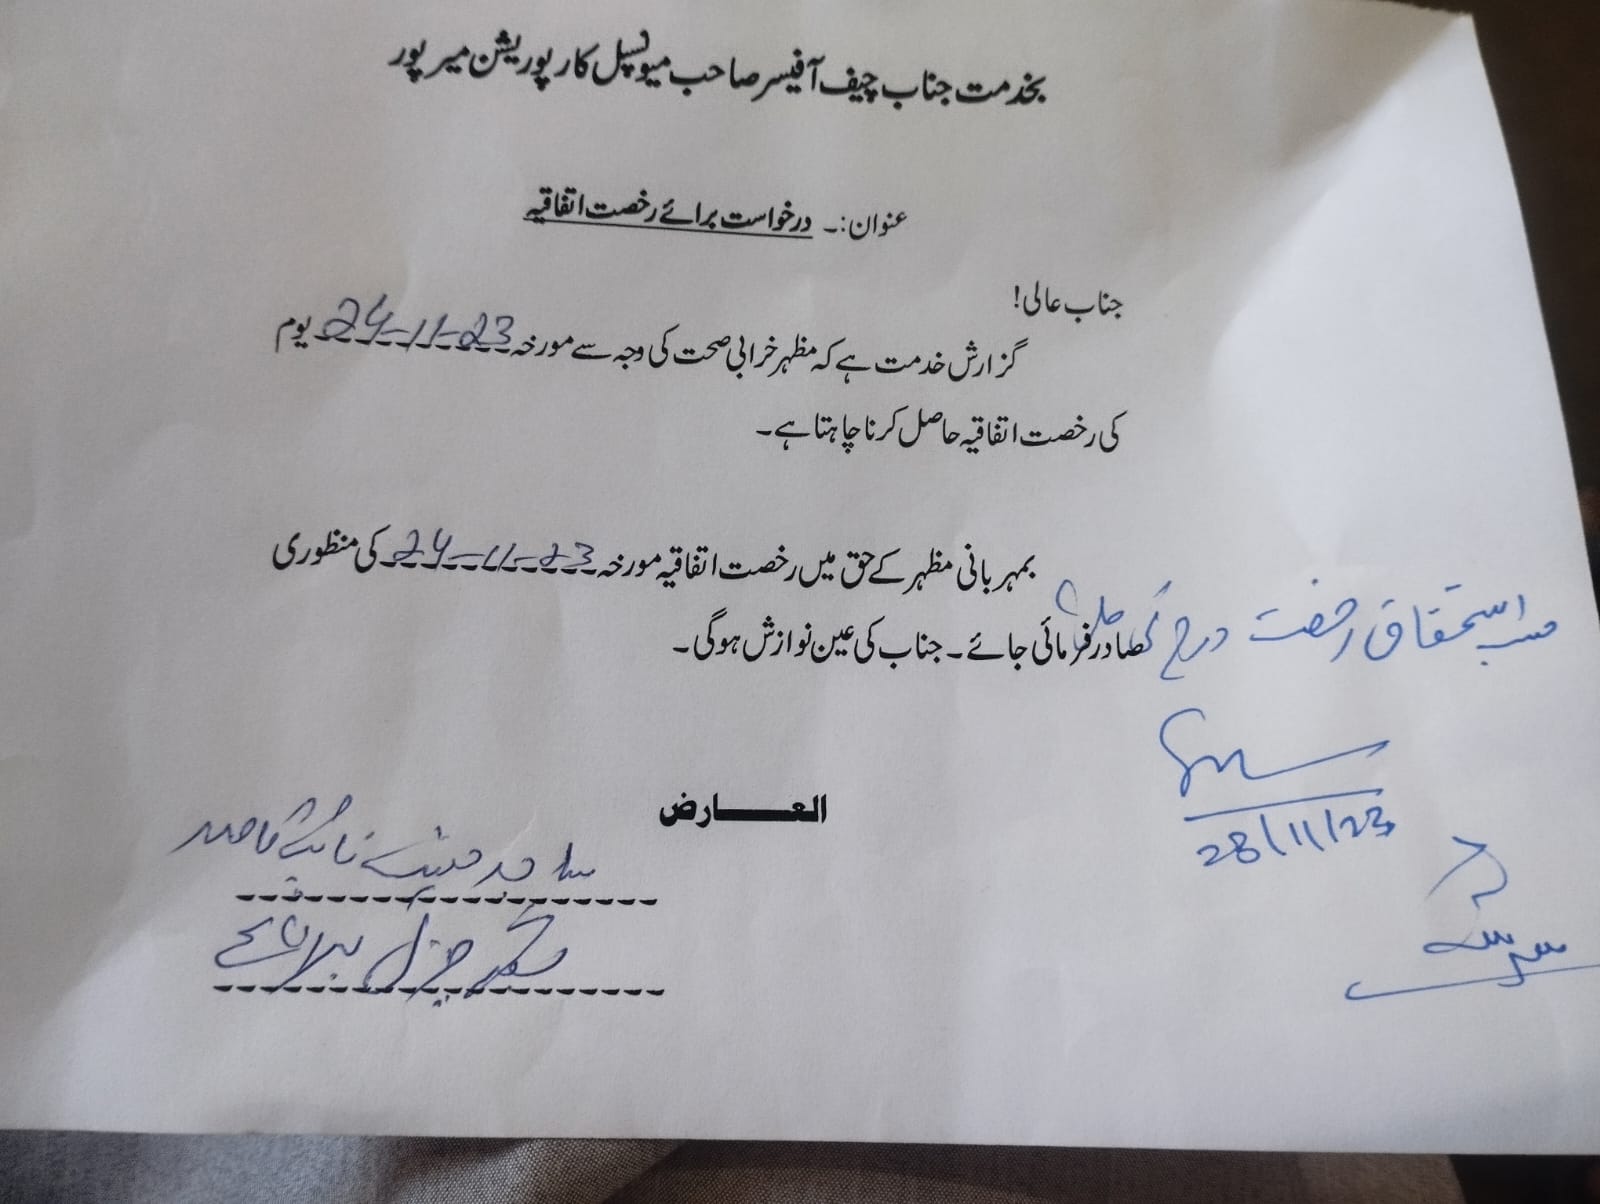 بخدمت جناب چیف آفیسر صاحب میونسپل کارپوریشن میرپور
عنوان:۔ درخواست برائے رخصت اتفاقیہ
جناب عالی!
گزارش خدمت ہے کہ مظہر خرابی صحت کی وجہ سے مورخہ 24-11-23 یوم
کی رخصت اتفاقیہ حاصل کرنا چاہتا ہے۔
بمہربانی مظہر کے حق میں رخصت اتفاقیہ مورخہ 24-11-23 کی منظوری
صادر فرمائی جائے۔ جناب کی عین نوازش ہوگی۔
حسب استحقاق رخصت درج
28/11/23
العارض
نائب قاصد